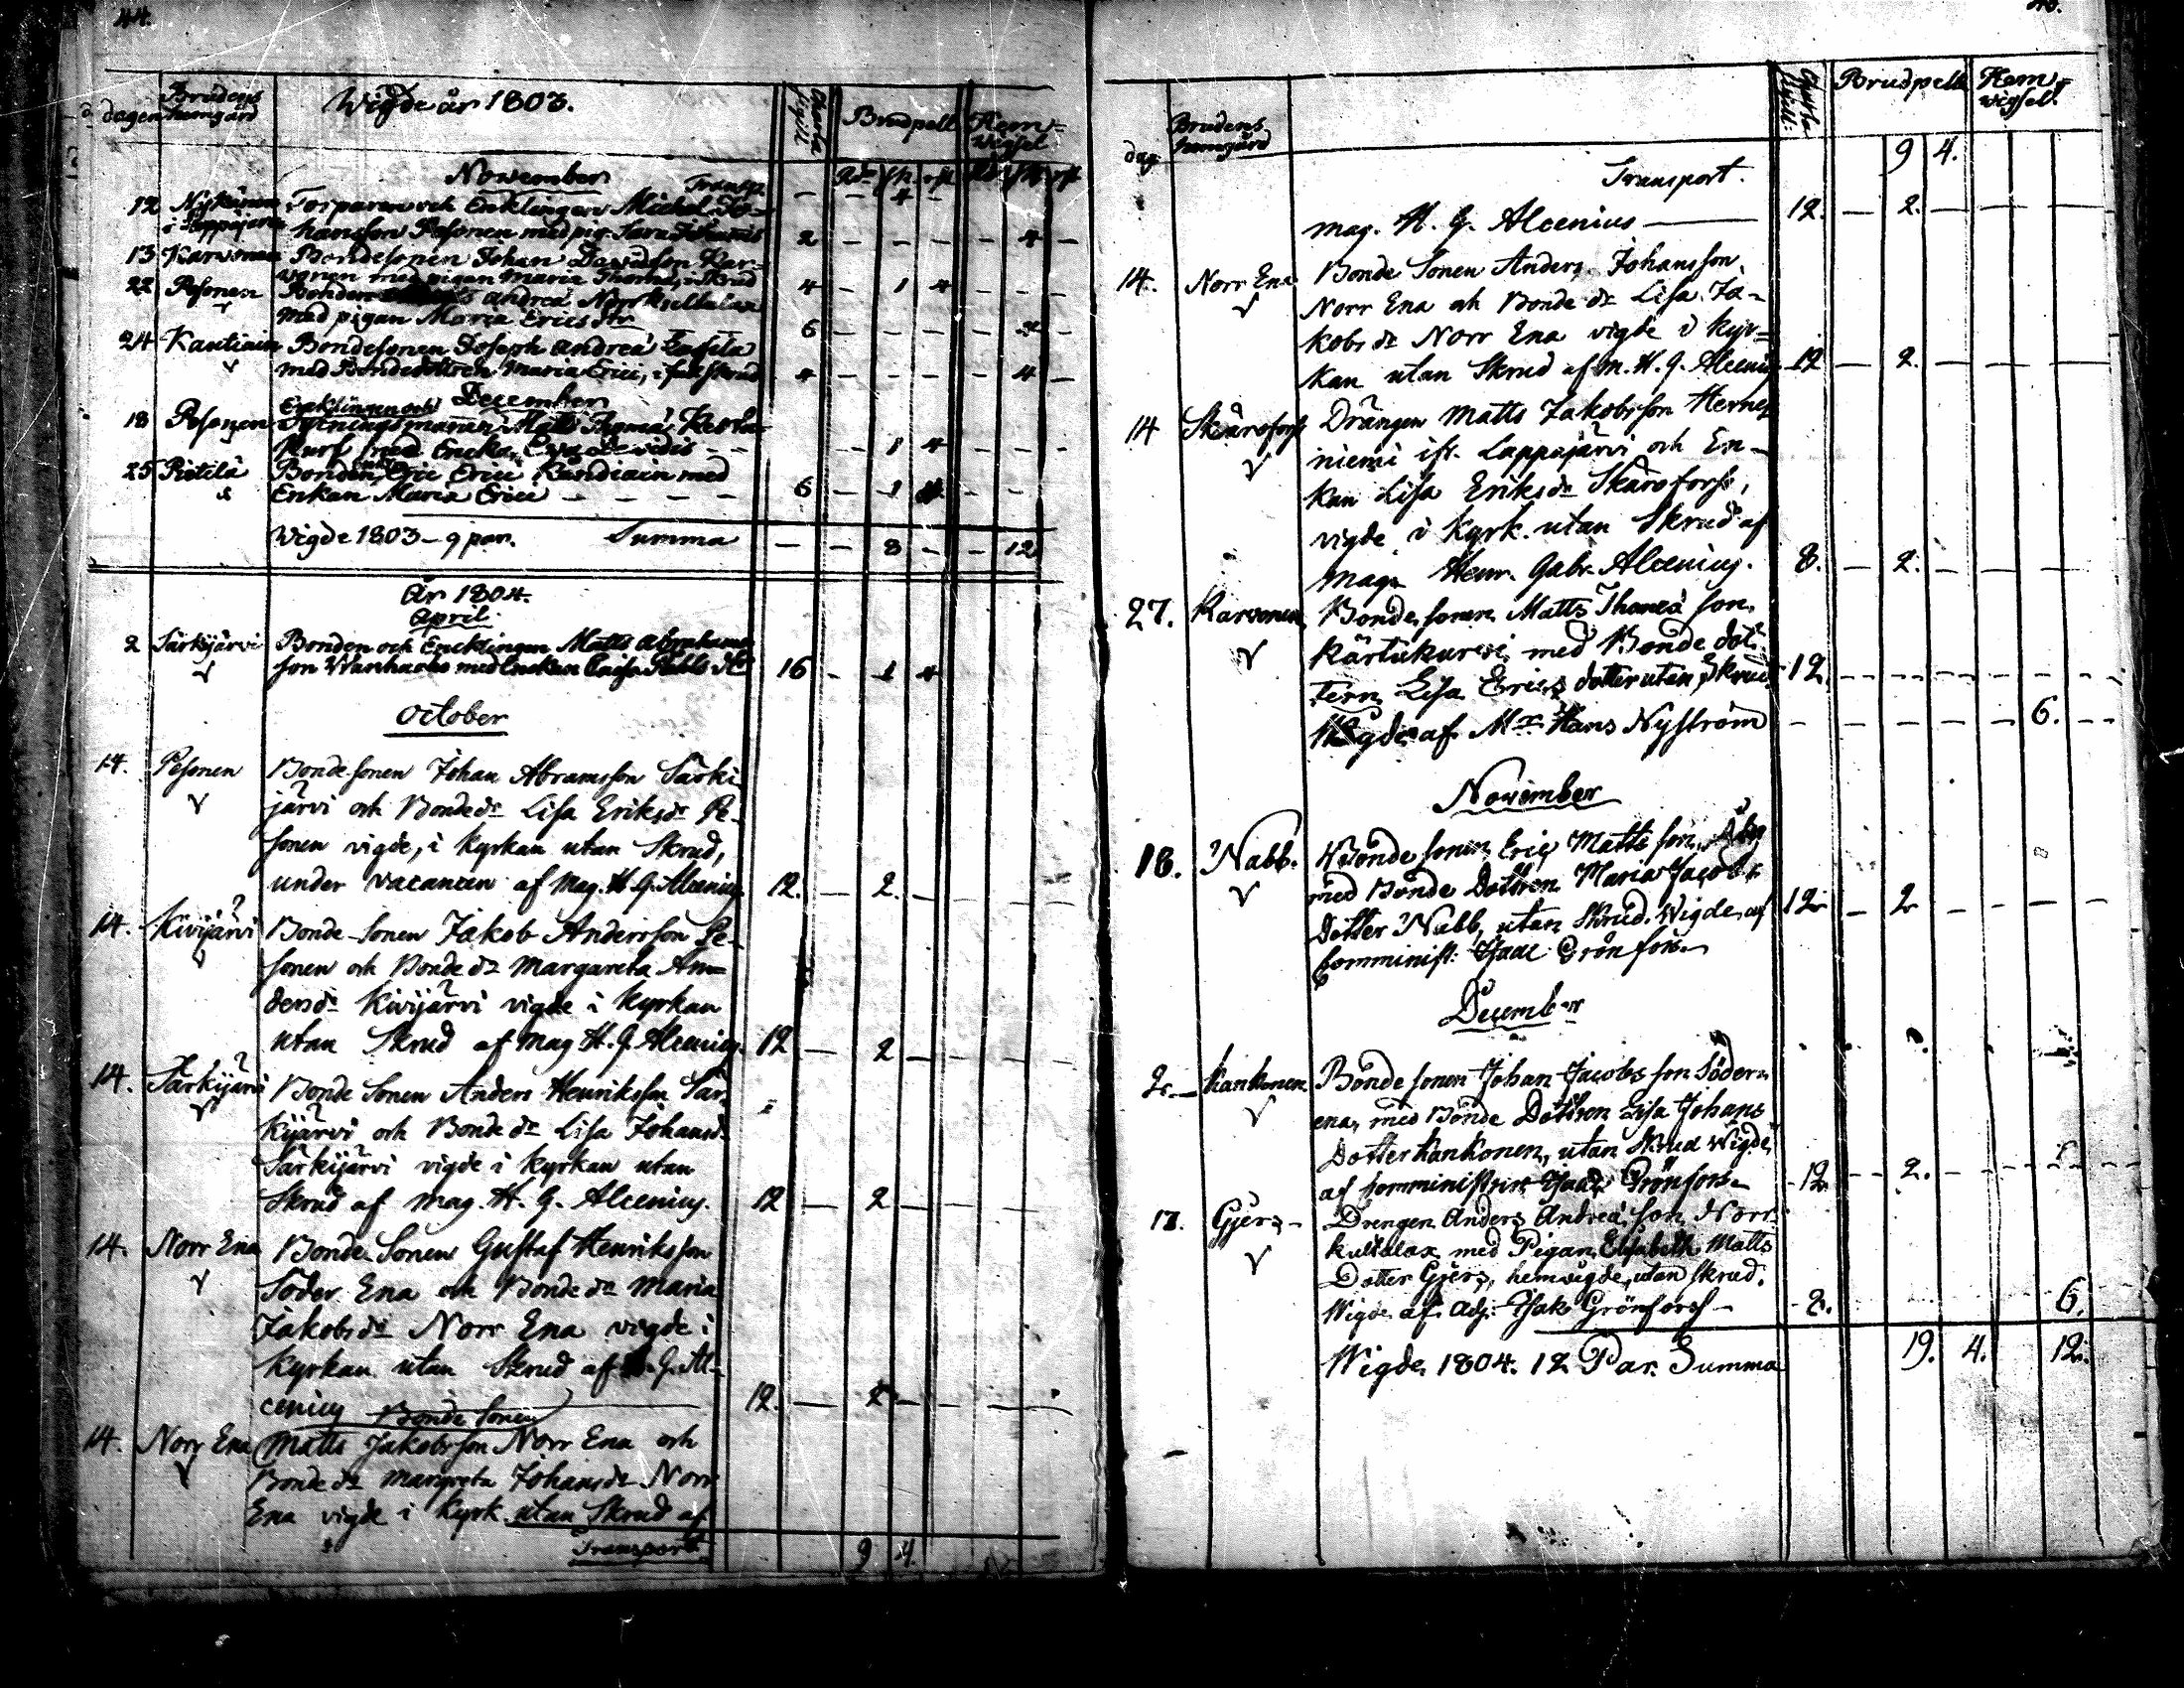 44.
dagen Brudens hemgård Wigde år 1803. Charta Sigill. Brudpell Hem-wigsel
Rdr sk. rst Rdr sk rst
November
Transp. — — 4 —
12 Nykänen Torparen och Enklingen Michel Jo-
i Lappajervi hansson Pesonen med pig. Sara Johannis 2 — — — — — 4 —
13 Karvonen Bondesonen Johan Davidson Kar-
vonen med pigan Maria Thomæ, i Skrud 4 — 1 4 — — —
22 Pesonen Bonden Andreæ Norrkulltalax
med pigan Maria Ericsdr 6 — — — —
24 Kautiain Bondesonen Joseph Andreæ
med Bondedottren Maria Erici, Skrud 4 — — — — — 4 —
December
18 Pesonen Enklingen och
Matts Thomæ
med Encka — — 1 4 — — —
25 Pietilä Bonden Eric Erici Kandiain med
Enkan Maria Erici — — — — 6 — 1 4 — —
Wigde 1803 — 9 par. Summa — — 8 — — 12
År 1804.
April
2 Särkijärvi Bonden och Encklingen Matts Abrahams
son Wanhacko med Enckan Caisa Pahls dr 16 — 1 4
October
14. Pesonen Bonde sonen Johan Abramsson Särki
järvi och Bonde dr Lisa Eriksdr Pe-
sonen vigde, i kyrkan utan Skrud,
under vacancen af Mag. H. G. Alcenius 12. — 2. — — — —
14. Kivijärvi Bonde-Sonen Jakob Andersson Pe-
sonen och Bonde dr Margareta An-
dersdr Kivijärvi vigde i kyrkan
utan Skrud af Mag H. G. Alcenius. 12 — 2 — — — —
14. Särkijärvi Bonde Sonen Anders Henriksson Sär-
kijärvi och Bonde dr Lisa Johansdr
Särkijärvi vigde i kyrkan utan
Skrud af Mag. H. G. Alcenius. 12 — 2 — — —
14. Norr Ena Bonde Sonen Gustaf Henriksson
Söder Ena och Bonde dr Maria
Jakobsdr Norr Ena vigde i
kyrkan utan Skrud af G. Al-
cenius 12. — 2 — — — —
Bonde Sonen
14. Norr Ena Matts Jakobsson Norr Ena och
Bonde dr Margreta Johansdr Norr
Ena vigde i kyrk. utan Skrud af
Transport 9 4.
dag Brudens hemgård Charta Sigill: Brudpell Hem-wigsel.
Transport. 9 4.
Mag. H. G. Alcenius — 12. — 2. — — — —
14. Norr Ena Bonde Sonen Anders Johansson
Norr Ena och Bonde dr Lisa Ja-
kobs dr Norr Ena vigde i kyr-
kan utan Skrud af M. H. G. Alcenius 12 — 2. — — — —
14 Skärsfors Drängen Matts Jakobsson Hernes
niemi ifr. Lappajärvi och En-
kan Lisa Eriksdr Skärsfors,
vigde i kyrk. utan Skrud af
Mag. Henr. Gabr. Alcenius. 8. — 2. — — — —
27. Karvonen Bonde sonen Matts Thomæ son
med Bonde dot-
tern Lisa Erics dotter utan Skrud. 12. — — — — — —
Wigde af Mr. Hans Nyström — — — — — 6. —
November
18. Nabb. Bonde sonen Eric Matts son
med Bonde Dottren Maria Jacobs
Dotter Nabb, utan Skrud. Wigde af 12 — 2 — — — —
Comminist: Isaac Grönfors.
December
2. Kankonen Bonde sonen Johan Jacobs son Söder-
ena, med Bonde Dottren Lisa Johans
Dotter Kankonen, utan Skrud Wigde
af Comministern Isaac Grönfors. 12 — 2. — — — —
Gjers - Drengen Anders Andreæ son Norr-
kulltalax med Pigan Elisabeth Matts
Dotter Gjers, hemvigde, utan skrud.
Wigde af Adj. Isak Grönfors — 2. 6.
Wigde 1804. 12 Par. Summa 19. 4. 12.